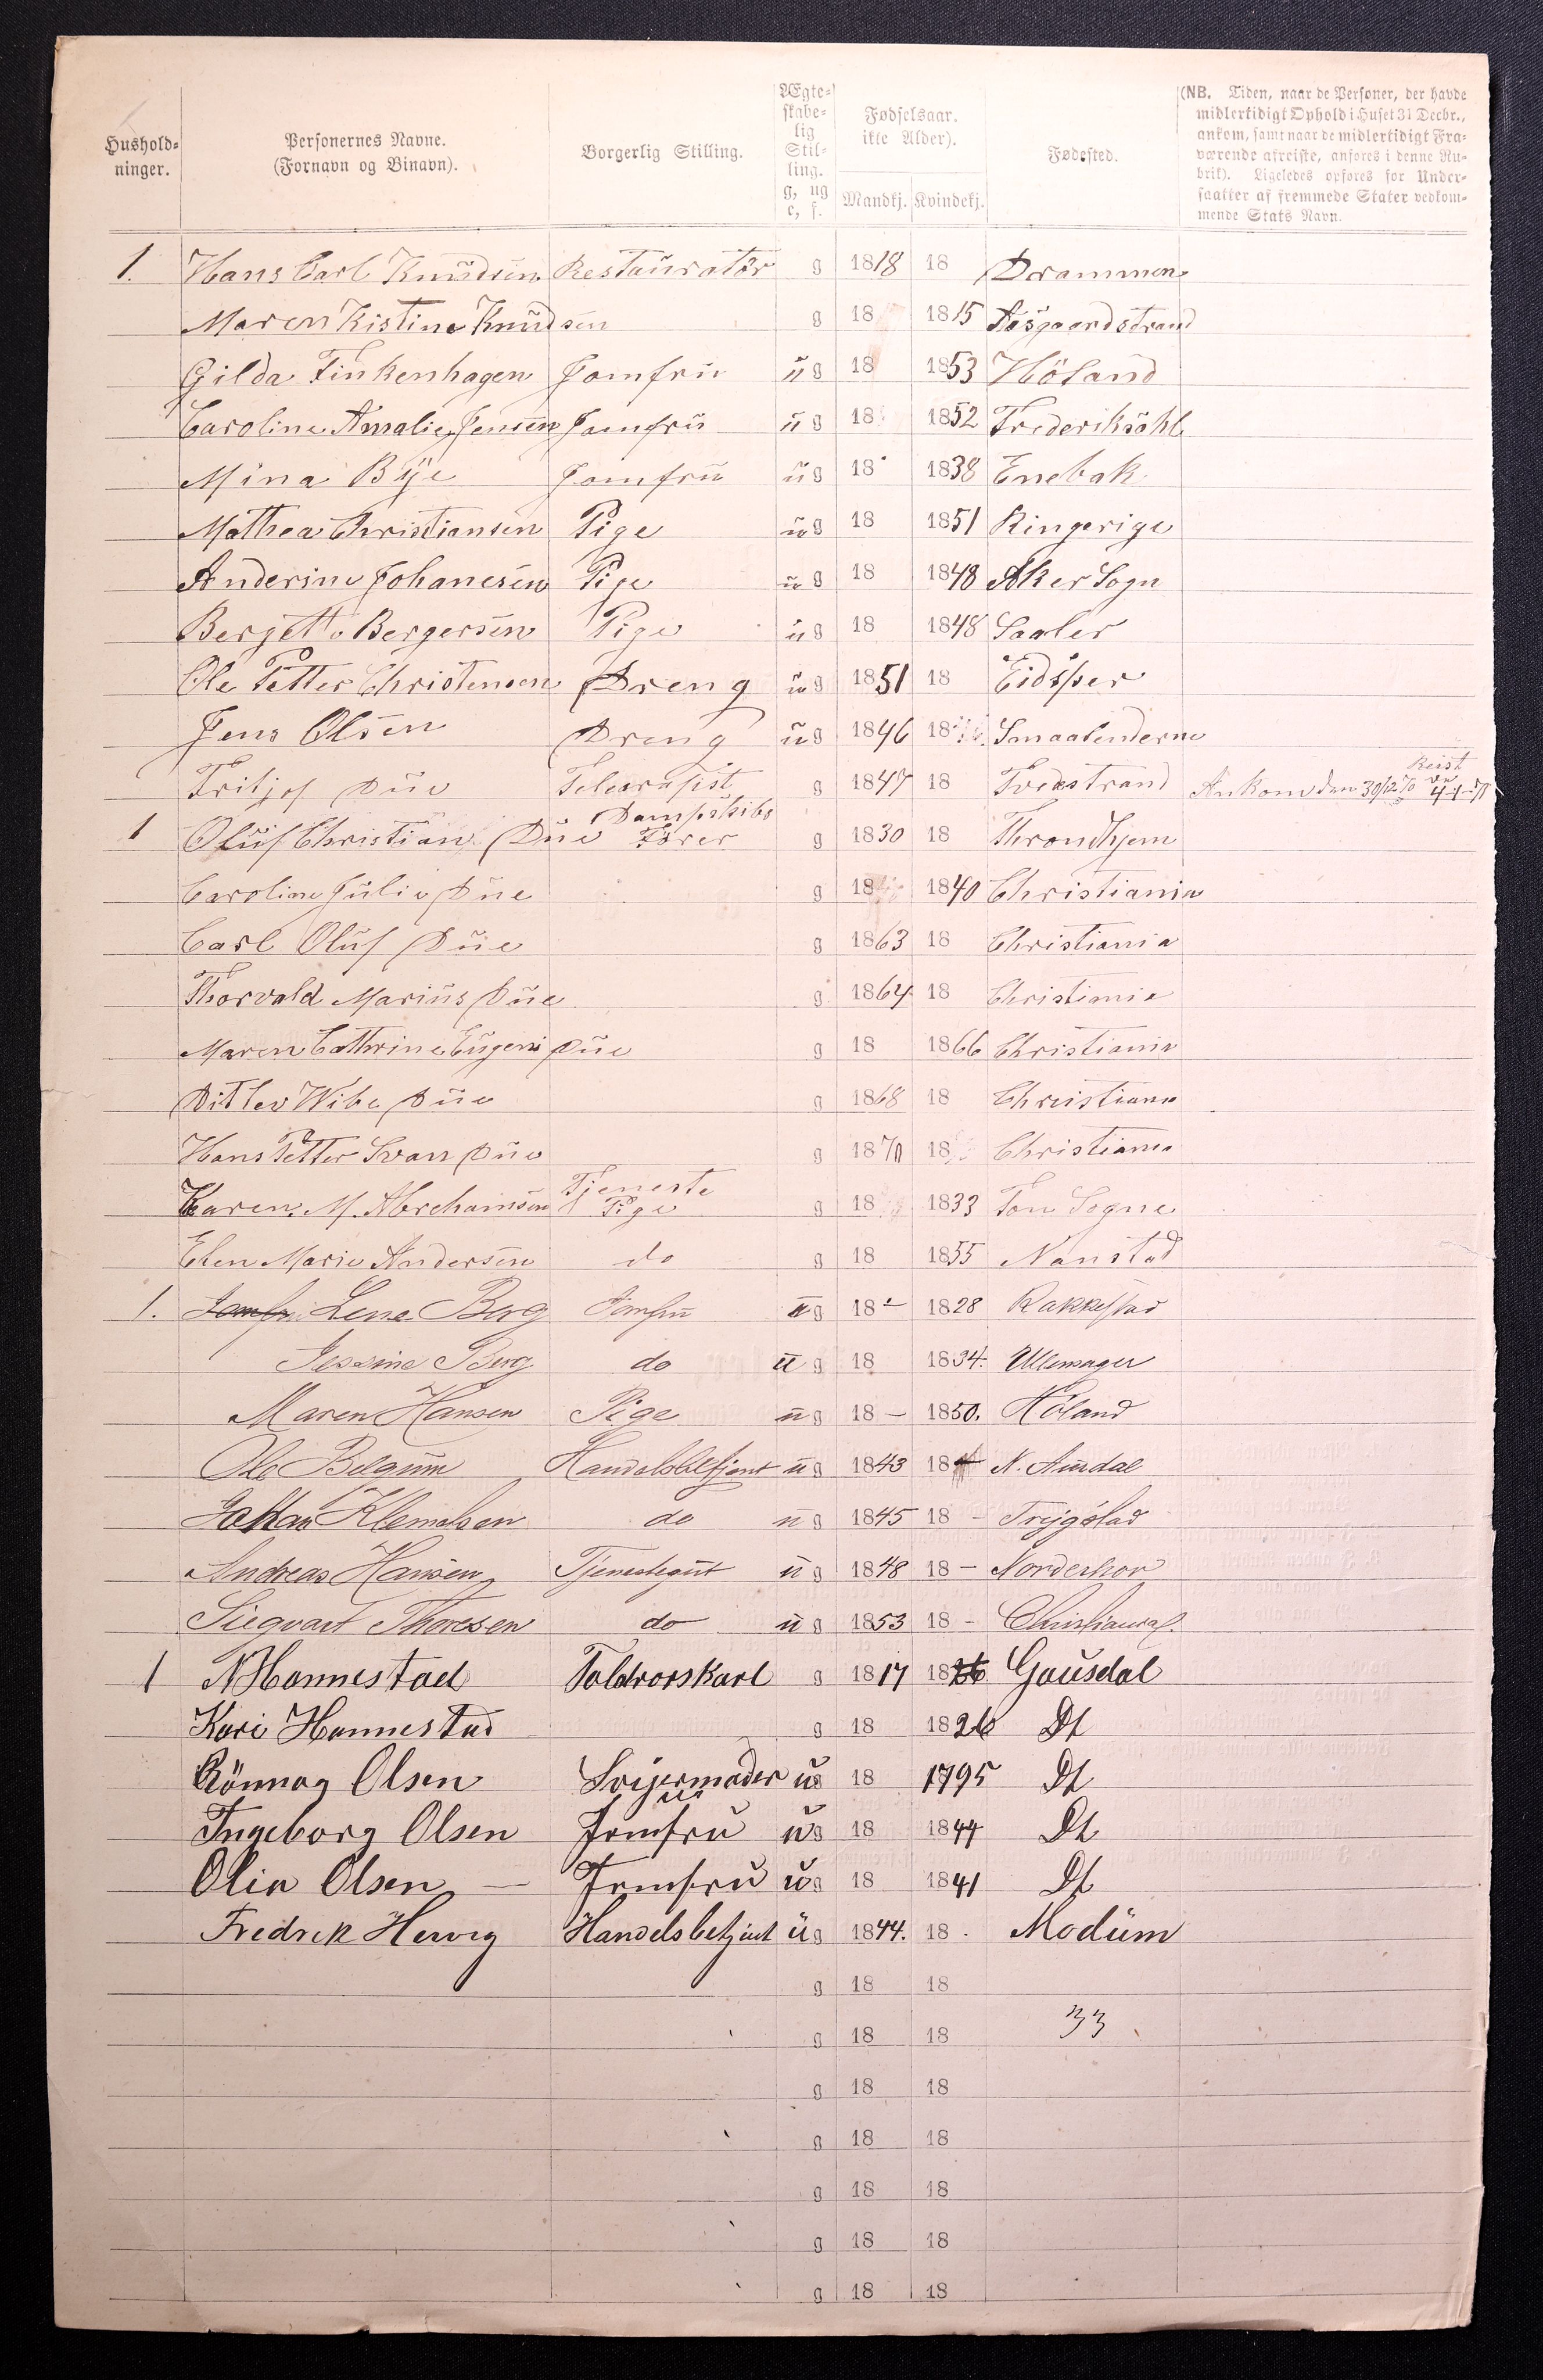 Hushold-
ninger.
Personernes Navne.
(Fornavn og Binavn).
Borgerlig Stilling.
Ægte-
skabe-
lig
Stil-
ling.
g, ug
e, f.
Fødselsaar.
ikke Alder).
Mandkj. Kvindekj.
Fødested.
(NB. Tiden, naar de Personer, der havde
midlertidigt Ophold i Huset 31 Decbr.,
ankom, samt naar de midlertidigt Fra-
værende afreiste, anføres i denne Ru-
brik). Ligeledes opføres for Under-
saatter af fremmede Stater vedkom-
mende Stats Navn.
1. Hans Carl Knudsen Restauratör g 1818 18 Drammen
Maren Kistine Knudsen g 18 1815 Aasgaardstrand
Gilda Finkenhagen Jomfru ug 18 1853 Höland
Caroline Amalie Jensen Jomfru ug 18 1852 Frederikshl
Mina Bye Jomfru ug 18 1838 Enebak
Mathea Christiansen Pige ug 18 1851 Ringerige
Anderine Johanesen Pige ug 18 1848 Aker Sogn
Berjette Bergersen Pige ug 18 1848 Saaler
Ole Petter Christensen Dreng ug 1851 18 Eidsper
Jens Olsen Dreng ug 1846 18 Smaalenderne
Fritjof Due Telegrafist g 1847 18 Tvedestrand Ankom den 30/12 70 Reist den 4-1-71
1 Oluf Christian Due Dampskibs Förer g 1830 18 Throndhjem
Caroline Julie Due g 18 1840 Christiania
Carl Oluf Due g 1863 18 Christiania
Thorvald Marius Due g 1864 18 Christiania
Maren Cathrine Eugeni Due g 18 1866 Christiania
Ditlev Wibe Due g 1868 18 Christiana
Hans Petter Svan Due g 1870 18 Christiania
Karen M. Abrehamsen Tjeneste Pige g 18 1833 Ton Sogne
Elen Marie Andersen do g 18 1855 Nanstad
1. Jomfru Lene Berg Jomfru ug 18 - 1828 Rakkestad
Jessine Berg do ug 18 1834. Ullensager
Maren Hansen Pige ug 18 - 1850. Höland
Ole Belgum Handelsbetjent ug 1843 18 N. Aurdal
Johan Klemetsen do ug 1845 18 - Trygstad
Andreas Hansen Tjenestegut ug 1848 18 - Norderhov
Siegvart Thoresen do ug 1853 18 - Christiania
1 N Hannestad Toldvorskarl g 1817 1826 Gausdal
Kari Hannestad g 18 1826 Dt
Rönnog Olsen Svigermoder ug 18 1795 Dt
Ingeborg Olsen Jomfru ug 18 1844 Dt
Olia Olsen - Jomfru ug 18 1841 Dt
Fredrik Hervig Handelsbetjent ug 1844. 18 Modum
g 18 18
g 18 18 33
g 18 18
g 18 18
g 18 18
g 18 18
g 18 18